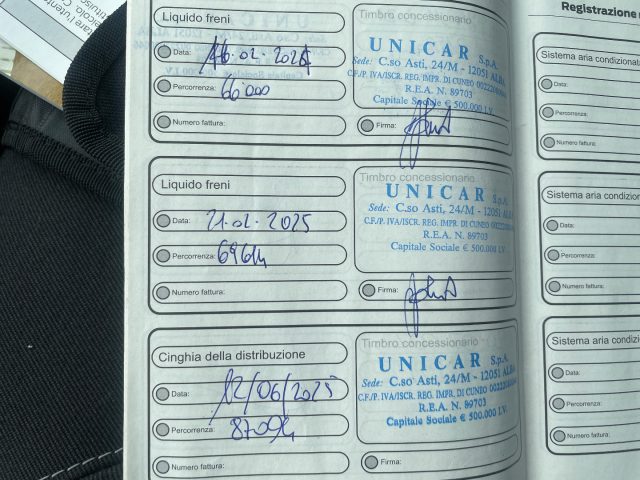 Liquido freni
Data: 16.02.2024
Percorrenza: 66'000
Numero fattura:
Timbro concessionario
UNICAR S.p.A.
Sede: C.so Asti, 24/M - 12051 ALBA
C.F./P. IVA/ISCR. REG. IMPR. DI CUNEO
R.E.A. N. 89703
Capitale Sociale € 500.000 I.V.
Firma:
Liquido freni
Data: 21.02.2025
Percorrenza:
Numero fattura:
Timbro concessionario
UNICAR S.p.A.
Sede: C.so Asti, 24/M - 12051 ALBA
C.F./P. IVA/ISCR. REG. IMPR. DI CUNEO
R.E.A. N. 89703
Capitale Sociale € 500.000 I.V.
Firma:
Cinghia della distribuzione
Data: 12/06/2025
Percorrenza: 87094
Numero fattura:
Timbro concessionario
UNICAR S.p.A.
Sede: C.so Asti, 24/M - 12051 ALBA
C.F./P. IVA/ISCR. REG. IMPR. DI CUNEO
R.E.A. N. 89703
Capitale Sociale € 500.000 I.V.
Firma:
Registrazione
Sistema aria condizionata
Data:
Percorrenza:
Numero fattura:
Sistema aria condizion
Data:
Percorrenza:
Numero fattura:
Sistema aria condizion
Data:
Percorrenza:
Numero fattura: